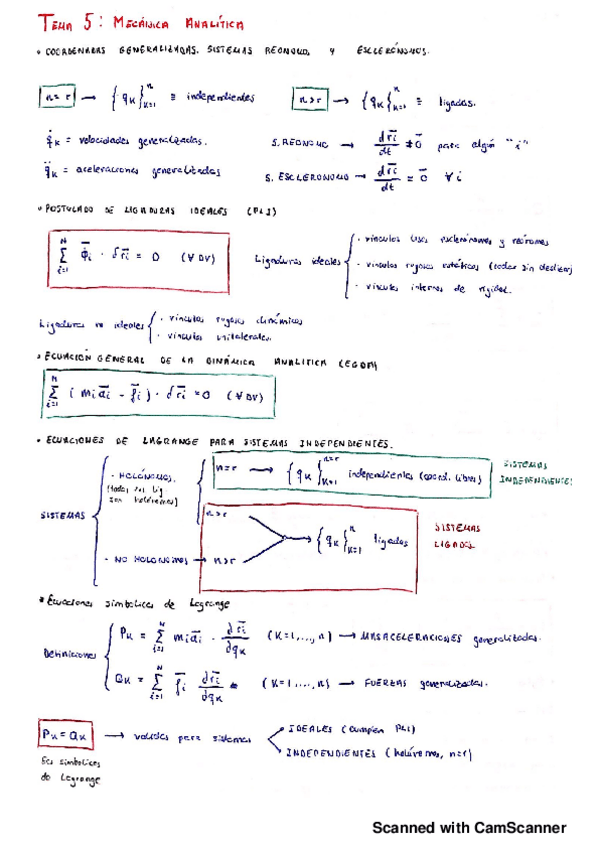 TEMA 5: MECÁNICA ANALÍTICA
• COORDENADAS GENERALIZADAS. SISTEMAS REÓNOMOS Y ESCLERÓNOMOS.
n = r → {q_k}_{k=1}^{n} ≡ independientes
n > r → {q_k}_{k=1}^{n} ≡ ligadas.
q̇_k = velocidades generalizadas.
S. REONOMO → dr̄i/dt ≠ 0̄ para algún "i"
q̈_k = aceleraciones generalizadas
S. ESCLERONOMO → dr̄i/dt = 0̄ ∀i
• POSTULADO DE LIGADURAS IDEALES (PLI)
∑_{i=1}^{N} Φ̄i · δr̄i = 0 (∀DV)
Ligaduras ideales
· vínculos lisos esclerónomos y reónomos
· vínculos rugosos estáticos (rodar sin deslizar)
· vínculos internos de rigidez.
Ligaduras no ideales
· vínculos rugosos dinámicos
· vínculos unilaterales.
• ECUACIÓN GENERAL DE LA DINÁMICA ANALITICA (EGDA)
∑_{i=1}^{N} (mi āi - f̄i) · δr̄i = 0 (∀DV)
• ECUACIONES DE LAGRANGE PARA SISTEMAS INDEPENDIENTES.
SISTEMAS
- HOLÓNOMOS.
(todas las lig son holónomas)
n = r → {q_k}_{k=1}^{n=r} independientes (coord. libres)
SISTEMAS INDEPENDIENTES
n > r
- NO HOLONOMOS → n > r
{q_k}_{k=1}^{n} ligadas
SISTEMAS LIGADOS
* Ecuaciones simbolicas de Lagrange
Definiciones
P_k = ∑_{i=1}^{N} mi āi · dr̄i/dq_k (k=1,...,n) → MASACELERACIONES generalizadas.
Q_k = ∑_{i=1}^{N} f̄i dr̄i/dq_k (k=1....,n) → FUERZAS generalizadas.
P_k = Q_k → validas para sistemas
IDEALES (cumplen PLI)
INDEPENDIENTES (holónomos, n=r)
Ecs simbolicas
de Lagrange
Scanned with CamScanner